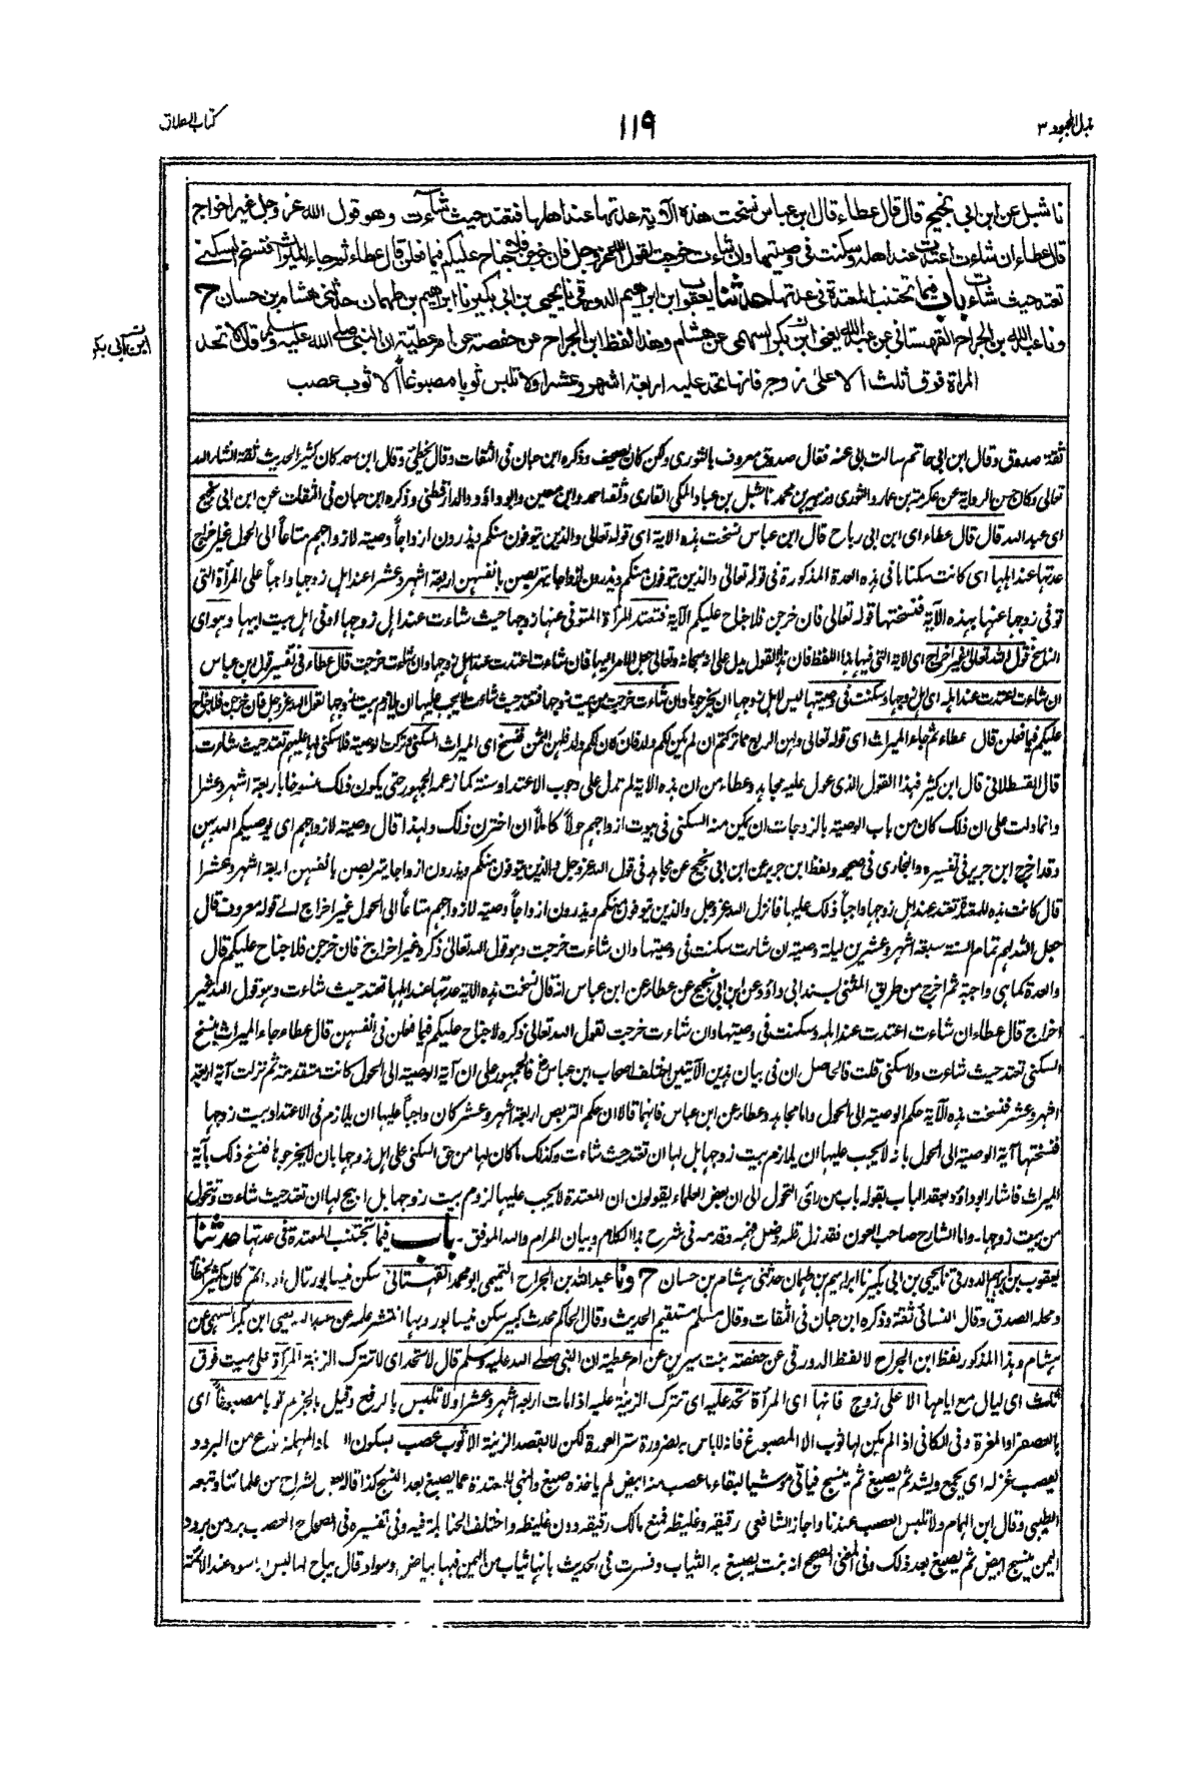 بذل المجهود ٣
١١٩
كتاب الطلاق
نا شبل عن ابن ابى نجيح قال قال عطاء قال ابن عباس نسخت هذه الآية عدتها عند اهلها فتعتد حيث شاءت وهو قول الله عز وجل غير اخراج
قال عطاء ان شاءت اعتدت عند اهله وسكنت فى وصيتها وان شاءت خرجت لقول الله عز وجل فان خرجن فلا جناح عليكم فيما فعلن قال عطاء ثم جاء الميراث فنسخ السكنى
تعتد حيث شاءت باب فيما تجتنب المعتدة فى عدتها حدثنا يعقوب ابن ابراهيم الدورقى نا يحيى بن ابى بكير نا ابراهيم بن طهمان حدثنى هشام بن حسان ح
ونا عبد الله بن الجراح القهستانى عن عبد الله يعنى ابن بكر السهمى عن هشام وهذا لفظ ابن الجراح عن حفصة عن ام عطية ان النبى صلى الله عليه وسلم قال لا تحد
المرأة فوق ثلث الا على زوج فانها تحد عليه اربعة اشهر وعشرا ولا تلبس ثوبا مصبوغاً الا ثوب عصب
ابن ابى بكر
ثقة صدوق وقال ابن ابى حاتم سالت ابى عنه فقال صدوق معروف بالثورى ولكن كان يصحف وذكره ابن حبان فى الثقات وقال يخطئ وقال ابن سعد كان كثير الحديث ثقة انشاء الله
تعالى وكان حسن الرواية عن عكرمة بن عمار والثورى وزهير بن محمد نا شبل بن عباد المكى القارى وثقه احمد وابن معين وابو داؤد والدارقطنى وذكره ابن حبان فى الثقات عن ابن ابى نجيح
اى عبد الله قال قال عطاء اى ابن ابى رباح قال ابن عباس نسخت هذه الاية اى قوله تعالى والذين يتوفون منكم ويذرون ازواجاً وصية لازواجهم متاعاً الى الحول غير اخراج
عدتها عند اهلها اى كانت سكناها فى هذه العدة المذكورة فى قوله تعالى والذين يتوفون منكم ويذرون ازواجا يتربصن بانفسهن اربعة اشهر وعشرا عند اهل زوجها واجباً على المرأة التى
توفى زوجها عنها بهذه الآية فنسختها قوله تعالى فان خرجن فلا جناح عليكم الآية فتعتد المرأة المتوفى عنها زوجها حيث شاءت عند اهل زوجها او فى اهل بيت ابيها وهو اى
الناسخ قول الله تعالى غير اخراج اى الاية التى فيها هذا اللفظ فان هذا القول يدل على انه سبحانه وتعالى جعل الامر اليها فان شاءت اعتدت عند اهل زوجها وان شاءت خرجت قال عطاء فى تفسير قول ابن عباس
ان شاءت اعتدت عند اهله اى اهل زوجها وسكنت فى وصيتها ليس لاهل زوجها ان يخرجوها وان شاءت خرجت من بيت زوجها فتعتد حيث شاءت لا يجب عليها ان يلازم بيت زوجها لقول الله عز وجل فان خرجن فلا جناح
عليكم فيما فعلن قال عطاء ثم جاء الميراث اى قوله تعالى ولهن الربع مما تركتم ان لم يكن لكم ولد فان كان لكم ولد فلهن الثمن فنسخ اى الميراث السكنى وتركت الوصية فلا سكنى لها عليهم تعتد حيث شاءت
قال القسطلانى قال ابن كثير فهذا القول الذى عول عليه مجاهد وعطاء من ان هذه الاية لم تدل على وجوب الاعتداد سنة كما زعمه الجمهور حتى يكون ذلك منسوخا باربعة اشهر وعشرا
وانما دلت على ان ذلك كان من باب الوصية بالزوجات ان يمكن من السكنى فى بيوت ازواجهم حولاً كاملاً ان اخترن ذلك ولهذا قال وصية لازواجهم اى يوصيكم الله بهن
وقد اخرج ابن جرير فى تفسيره والبخارى فى صحيحه ولفظ ابن جرير عن ابن ابى نجيح عن مجاهد فى قول الله عز وجل والذين يتوفون منكم ويذرون ازواجا يتربصن بانفسهن اربعة اشهر وعشرا
قال كانت هذه للمعتدة تعتد عند اهل زوجها واجباً ذلك عليها فانزل الله عز وجل والذين يتوفون منكم ويذرون ازواجاً وصية لازواجهم متاعاً الى الحول غير اخراج الى قوله معروف قال
جعل الله لهم تمام السنة سبعة اشهر وعشرين ليلة وصية ان شاءت سكنت فى وصيتها وان شاءت خرجت وهو قول الله تعالى ذكره غير اخراج فان خرجن فلا جناح عليكم قال
والعدة كما هى واجبة ثم اخرج من طريق المثنى بسند ابى داؤد عن ابن ابى نجيح عن عطاء عن ابن عباس انه قال نسخت هذه الاية عدتها عند اهلها تعتد حيث شاءت وهو قول الله غير
اخراج قال عطاء ان شاءت اعتدت عند اهله وسكنت فى وصيتها وان شاءت خرجت لقول الله تعالى ذكره لا جناح عليكم فيما فعلن فى انفسهن قال عطاء جاء الميراث بنسخ
السكنى تعتد حيث شاءت ولا سكنى قلت فالحاصل ان فى بيان هذين الآيتين اختلف اصحاب ابن عباس فالجمهور على ان آية الوصية الى الحول كانت متقدمة ثم نزلت آية اربعة
اشهر وعشر فنسخت هذه الآية حكم الوصية الى الحول واما مجاهد وعطاء عن ابن عباس فانهما قالا ان حكم التربص اربعة اشهر وعشر كان واجباً عليها ان يلازم فى الاعتداد بيت زوجها
فنسختها آية الوصية الى الحول بانه لا يجب عليها ان يلازم بيت زوجها بل لها ان تعتد حيث شاءت وكذلك ما كان لها من حق السكنى على اهل زوجها بان لا يخرجوها فنسخ ذلك بآية
الميراث فاشار ابو داؤد بعقد الباب بقوله باب من رأى التحول الى ان بعض العلماء يقولون ان المعتدة لا يجب عليها لزوم بيت زوجها بل ابيح لها ان تعتد حيث شاءت وتتحول
من بيت زوجها ۔ واما الشارح صاحب العون فقد زل قلمه وضل فهمه وقدمه فى شرح هذا الكلام وبيان المرام والله الموفق ۔ باب فيما تجتنب المعتدة فى عدتها حدثنا
يعقوب بن ابراهيم الدورقى نا يحيى بن ابى بكير نا ابراهيم بن طهمان حدثنى هشام بن حسان ح ونا عبد الله بن الجراح التميمى ابو محمد القهستانى سكن نيسابور قال ابو حاتم كان كثير الخطأ
ومحله الصدق وقال النسائى ثقة وذكره ابن حبان فى الثقات وقال مسلم مستقيم الحديث وقال الحاكم محدث كبير سكن نيسابور وبها انتشر علمه عن عبد الله يعنى ابن بكر السهمى عن
هشام وهذا المذكور لفظ ابن الجراح لا لفظ الدورقى عن حفصة بنت سيرين عن ام عطية ان النبى صلى الله عليه وسلم قال لا تحد اى لا تترك الزينة المرأة على ميت فوق
ثلث اى ليال مع ايامها الا على زوج فانها اى المرأة تحد عليه اى تترك الزينة عليه اذا مات اربعة اشهر وعشرا ولا تلبس بالرفع وقيل بالجزم ثوبا مصبوغاً اى
بالعصفر او المغرة وفى الكافى اذا لم يكن لها ثوب الا المصبوغ فانه لا باس به لضرورة ستر العورة لكن لا بقصد الزينة الا ثوب عصب بسكون الصاد المهملة نوع من البرود
يعصب غزله اى يجمع ويشد ثم يصبغ ثم ينسج فياتى موشيا لبقاء ما عصب منه ابيض لم ياخذه صبغ والنهى للمعتدة عما يصبغ بعد النسج كذا قاله بعض الشراح من علمائنا وتبعه
الطيبى وقال ابن الهمام ولا تلبس العصب عندنا واجاز الشافعى رقيقه وغليظه فمنع مالك رقيقه دون غليظه واختلف الحنابلة فيه وفى تفسيره فى الصحاح العصب برد من برود
اليمن ينسج ابيض ثم يصبغ بعد ذلك وفى المغنى الصحيح انه نبت يصبغ به الثياب وفسرت فى الحديث بانها ثياب من اليمن فيها بياض وسواد قال يباح لها لبس الاسود عند الائمة